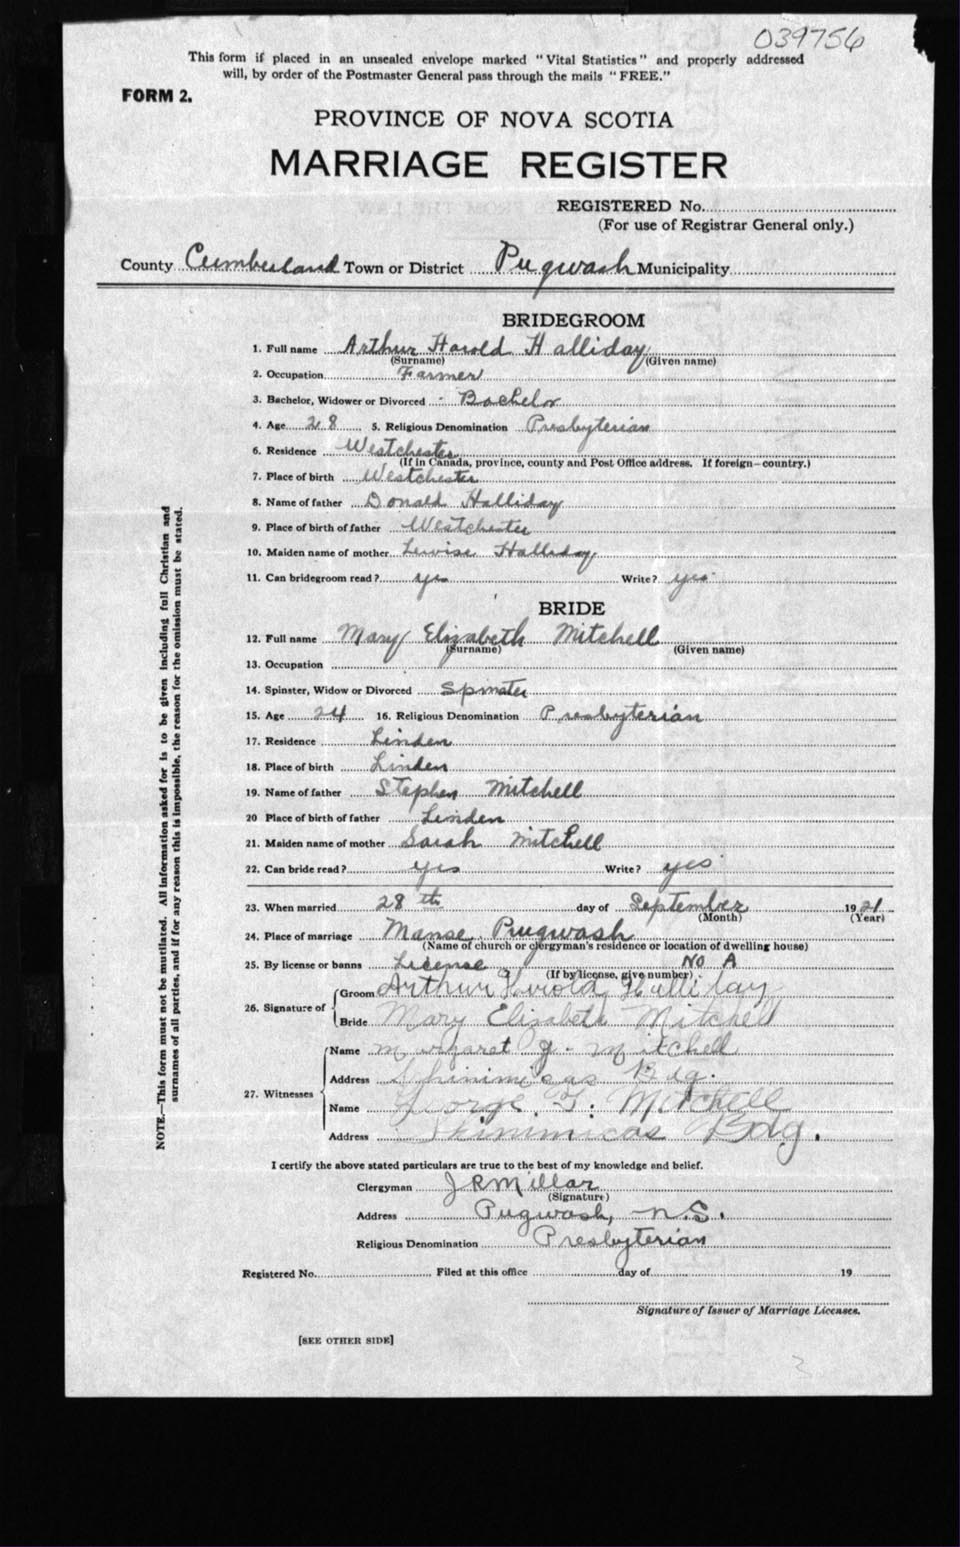 039756
This form if placed in an unsealed envelope marked "Vital Statistics" and properly addressed
will, by order of the Postmaster General pass through the mails "FREE."
FORM 2.
PROVINCE OF NOVA SCOTIA
MARRIAGE REGISTER
REGISTERED No.
(For use of Registrar General only.)
County Cumberland Town or District Pugwash Municipality
BRIDEGROOM
1. Full name Arthur Harold Halliday
(Surname) (Given name)
2. Occupation Farmer
3. Bachelor, Widower or Divorced - Bachelor
4. Age 28 5. Religious Denomination Presbyterian
6. Residence Westchester
(If in Canada, province, county and Post Office address. If foreign—country.)
7. Place of birth Westchester
8. Name of father Donald Halliday
9. Place of birth of father Westchester
10. Maiden name of mother Halliday
11. Can bridegroom read? yes Write? yes
BRIDE
12. Full name Mary Elizabeth Mitchell
(Surname) (Given name)
13. Occupation
14. Spinster, Widow or Divorced Spinster
15. Age 24 16. Religious Denomination Presbyterian
17. Residence Linden
18. Place of birth Linden
19. Name of father Stephen Mitchell
20 Place of birth of father Linden
21. Maiden name of mother Sarah Mitchell
22. Can bride read? yes Write? yes
23. When married 28th day of September 1921
(Month) (Year)
24. Place of marriage Manse Pugwash
(Name of church or clergyman's residence or location of dwelling house)
25. By license or banns License No A
(If by license, give number)
26. Signature of Groom Arthur Harold Halliday
Bride Mary Elizabeth Mitchell
27. Witnesses
Name Margaret J. Mitchell
Address Shinimicas Bdg.
Name George. T. Mitchell
Address Shinimicas Bdg.
I certify the above stated particulars are true to the best of my knowledge and belief.
Clergyman J R Millar
(Signature)
Address Pugwash, N.S.
Religious Denomination Presbyterian
Registered No. Filed at this office day of 19
Signature of Issuer of Marriage Licenses.
[SEE OTHER SIDE]
3
NOTE.—This form must not be mutilated. All information asked for is to be given including full Christian and
surnames of all parties, and if for any reason this is impossible, the reason for the omission must be stated.